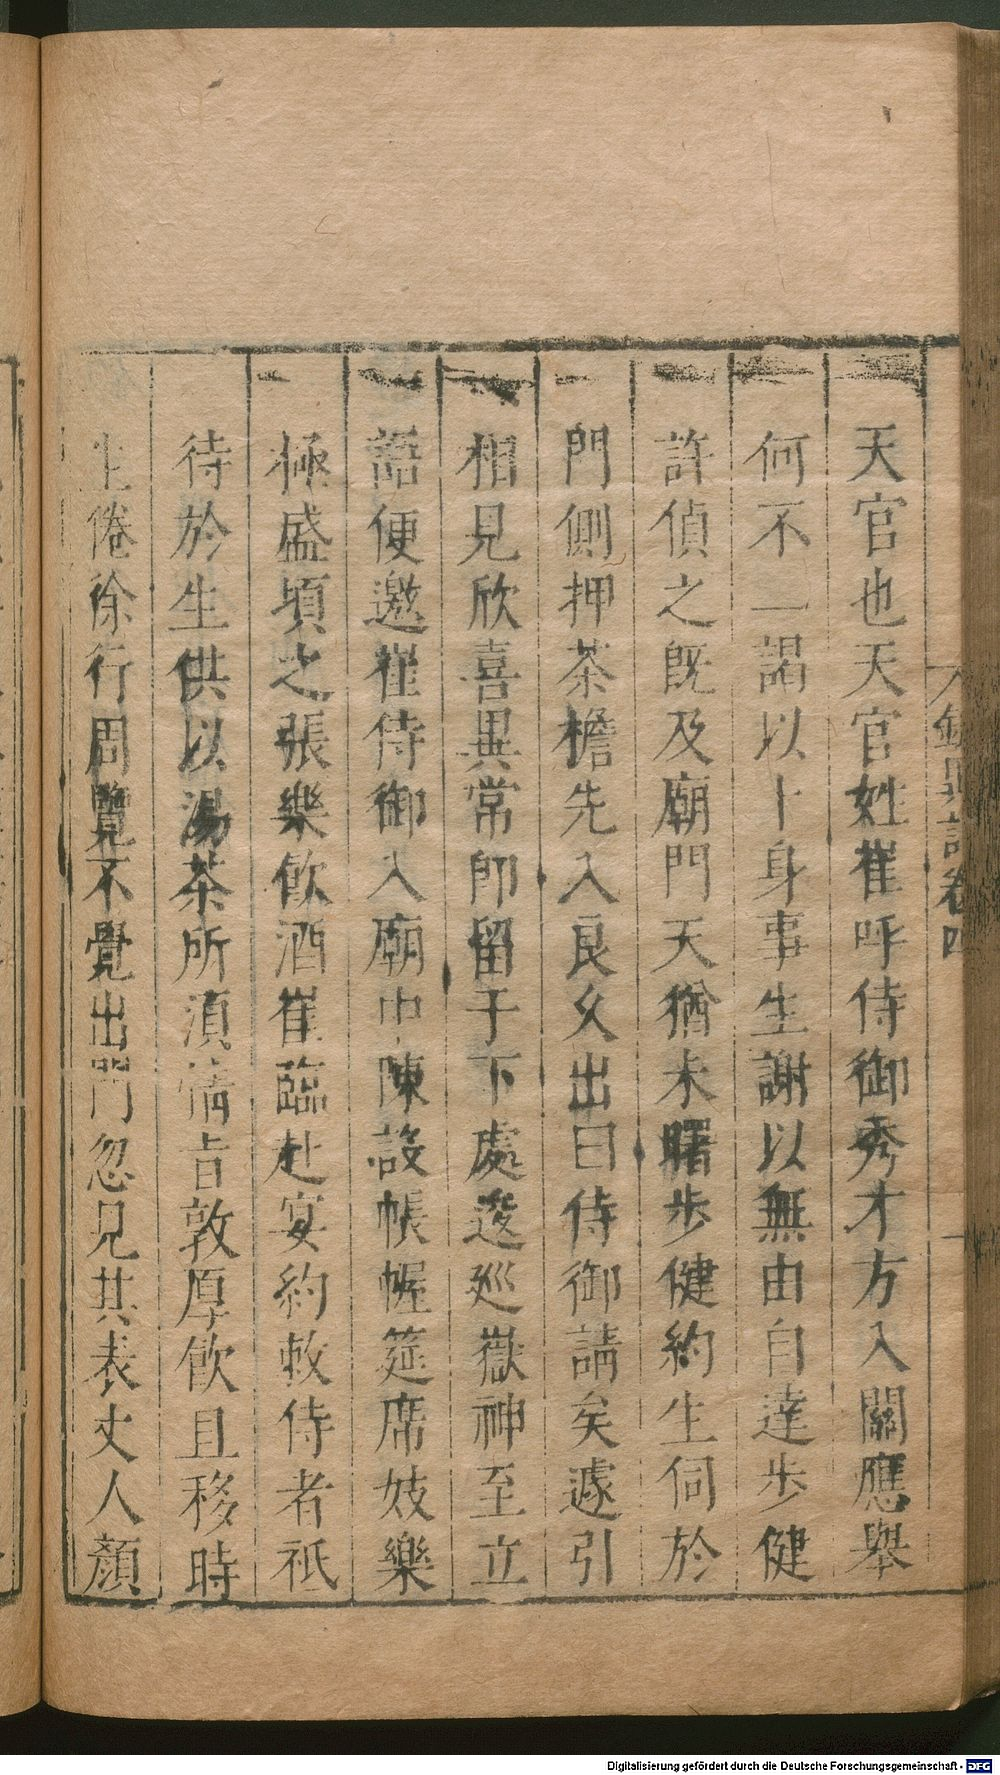 天官也天官姓崔呼侍御秀才方入關應舉
何不一謁以卜身事生謝以無由自達步健
許偵之既及廟門天猶未曙步健約生伺於
門側押茶檐先入良久出曰侍御請矣遽引
相見欣喜異常即留于下處逡廵嶽神至立
語便邀崔侍御入廟中陳設帳幄筵席妓樂
極盛頃之張樂飮酒崔臨赴宴約敕侍者祗
待於生供以湯茶所須情旨敦厚飮且移時
生倦徐行周覽不覺出門忽見其表丈人顏
卷四
Digitalisierung gefördert durch die Deutsche Forschungsgemeinschaft - DFG